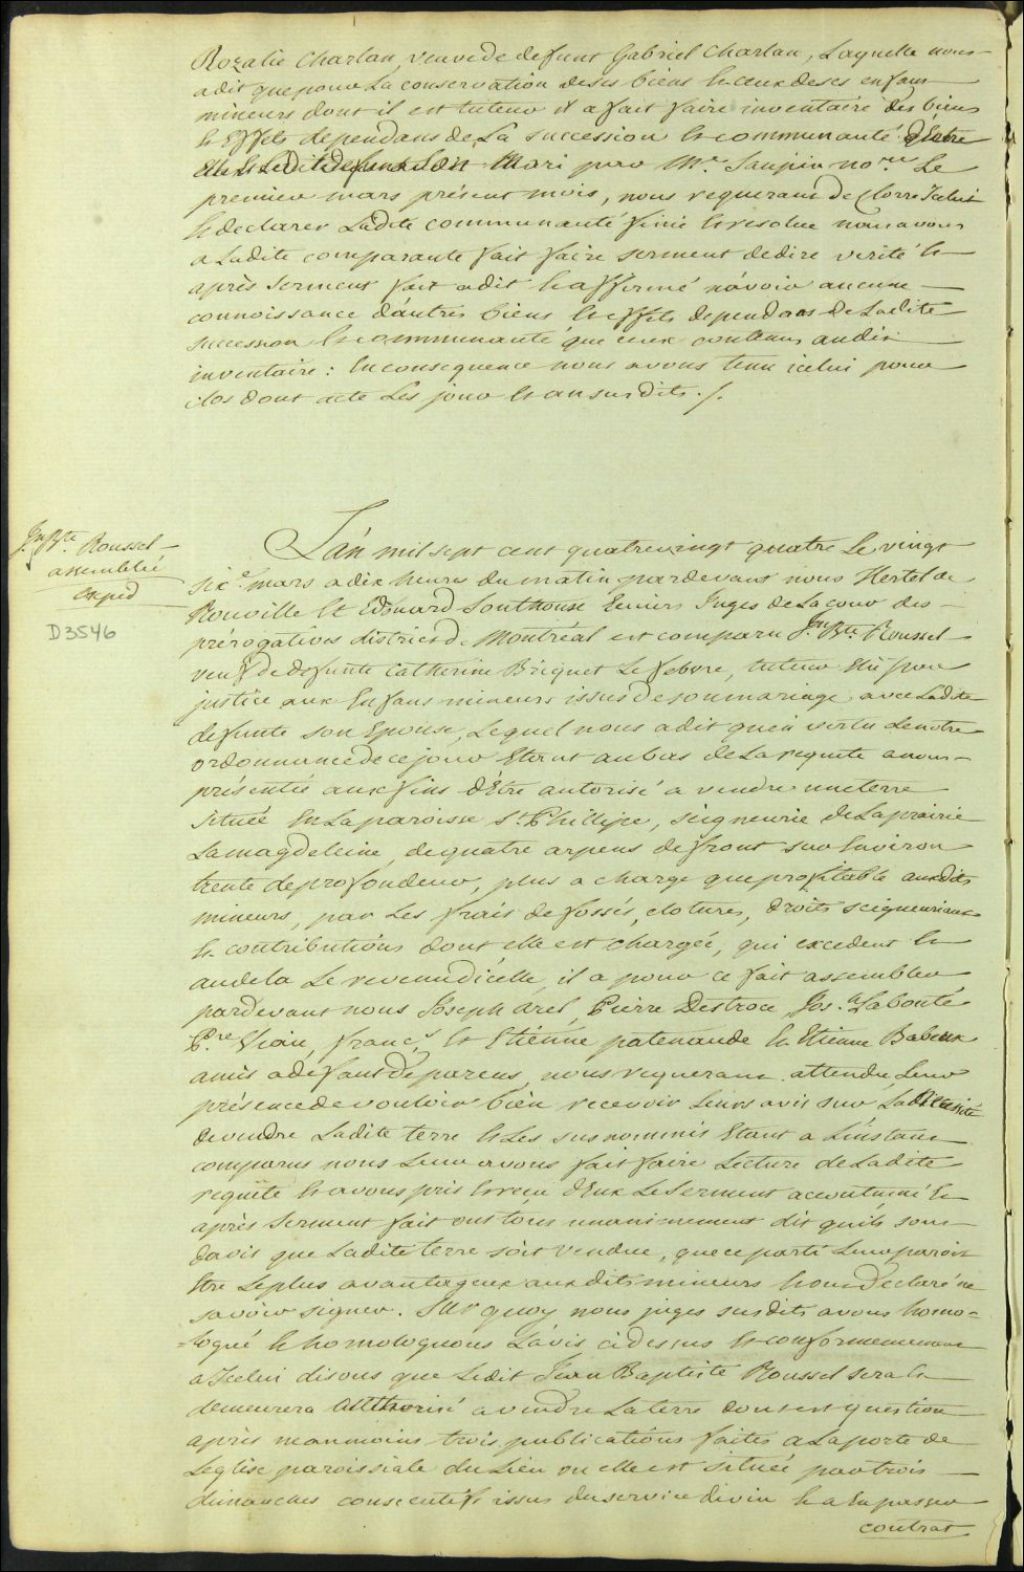 Rozalie Charlan, veuve de defunt Gabriel Charlan, Laquelle nous
a dit que pour La conservation de ses biens & ceux de ses enfans
mineurs dont il est tuteur il a fait faire inventaire des biens
& Effets dependans de La succession & communauté d'Entre
Elle & Ledit defunt son Mari par Me. Saupin nore. Le
premier mars présent mois, nous requerant de Clorre Icelui
& declarer Ladite communauté finie & resolue nous avons
a Ladite comparante fait faire serment de dire verité &
après serment fait a dit & affirmé n'avoir aucune
connoissance d'autres biens & effets dependans de Ladite
succession & communauté que ceux contenus audit
inventaire : En consequence nous avons tenu icelui pour
clos dont acte Les jour & an susdits ./.
Jn. Bte. Roussel
assemblée
Exped
D3546
L'an mil sept cent quatrevingt quatre Le vingt
sixe. mars a dix heures du matin pardevant nous Hertel de
Rouville & Edouard Southouse Ecuiers Juges de La cour des
prérogatives district de Montréal est comparu Jn. Bte. Roussel
veuf de defunte Catherine Briquet Le febvre, tuteur Elû par
justice aux Enfans mineurs issus de son mariage avec Ladite
defunte son Epouse, Lequel nous a dit qu'en vertu de notre
ordonnance de ce jour Etant au bas de La requete a nous
présentée aux fins d'Etre autorisé a vendre une terre
située En La paroisse St. Phillipe, seigneurie de Laprairie
Lamagdeleine, de quatre arpens de front sur Environ
trente de profondeur, plus a charge que profitable auxdits
mineurs, par Les frais de fossés, clotures, droits seigneuriaux
& contributions dont elle est chargée, qui excedent &
audela Le revenu d'icelle, il a pour ce fait assembler
pardevant nous Joseph Arel, Pierre Destroce, Jos. Labonté
Pre. Vian, Franc.s & Etienne patenaude & Etienne Babeux
amis a defaut de parens, nous requerant attendu Leur
présence de vouloir bien recevoir Leurs avis sur La Necessité
de vendre Ladite terre & Les susnommés Etant a L'instant
comparus nous Leur avons fait faire Lecture de Ladite
requête & avons pris & reçu d'Eux Le Serment accoutumé &
après serment fait ont tous unanimement dit qu'ils sont
d'avis que Ladite terre soit vendue, que ce parti Leur paroit
Etre Le plus avantageux auxdits mineurs & ont declaré ne
savoir signer. Sur quoy nous juges susdits avons homo-
=logué & homologuons L'avis ci dessus & conformement
a Icelui disons que Ledit Jean Baptiste Roussel sera &
demeurera Authorisé a vendre La terre dont est question
après neanmoins trois publications faites a La porte de
L'eglise paroissiale du Lieu ou elle est située par trois
dimanches consecutifs issue du service divin & a En passer
contrat